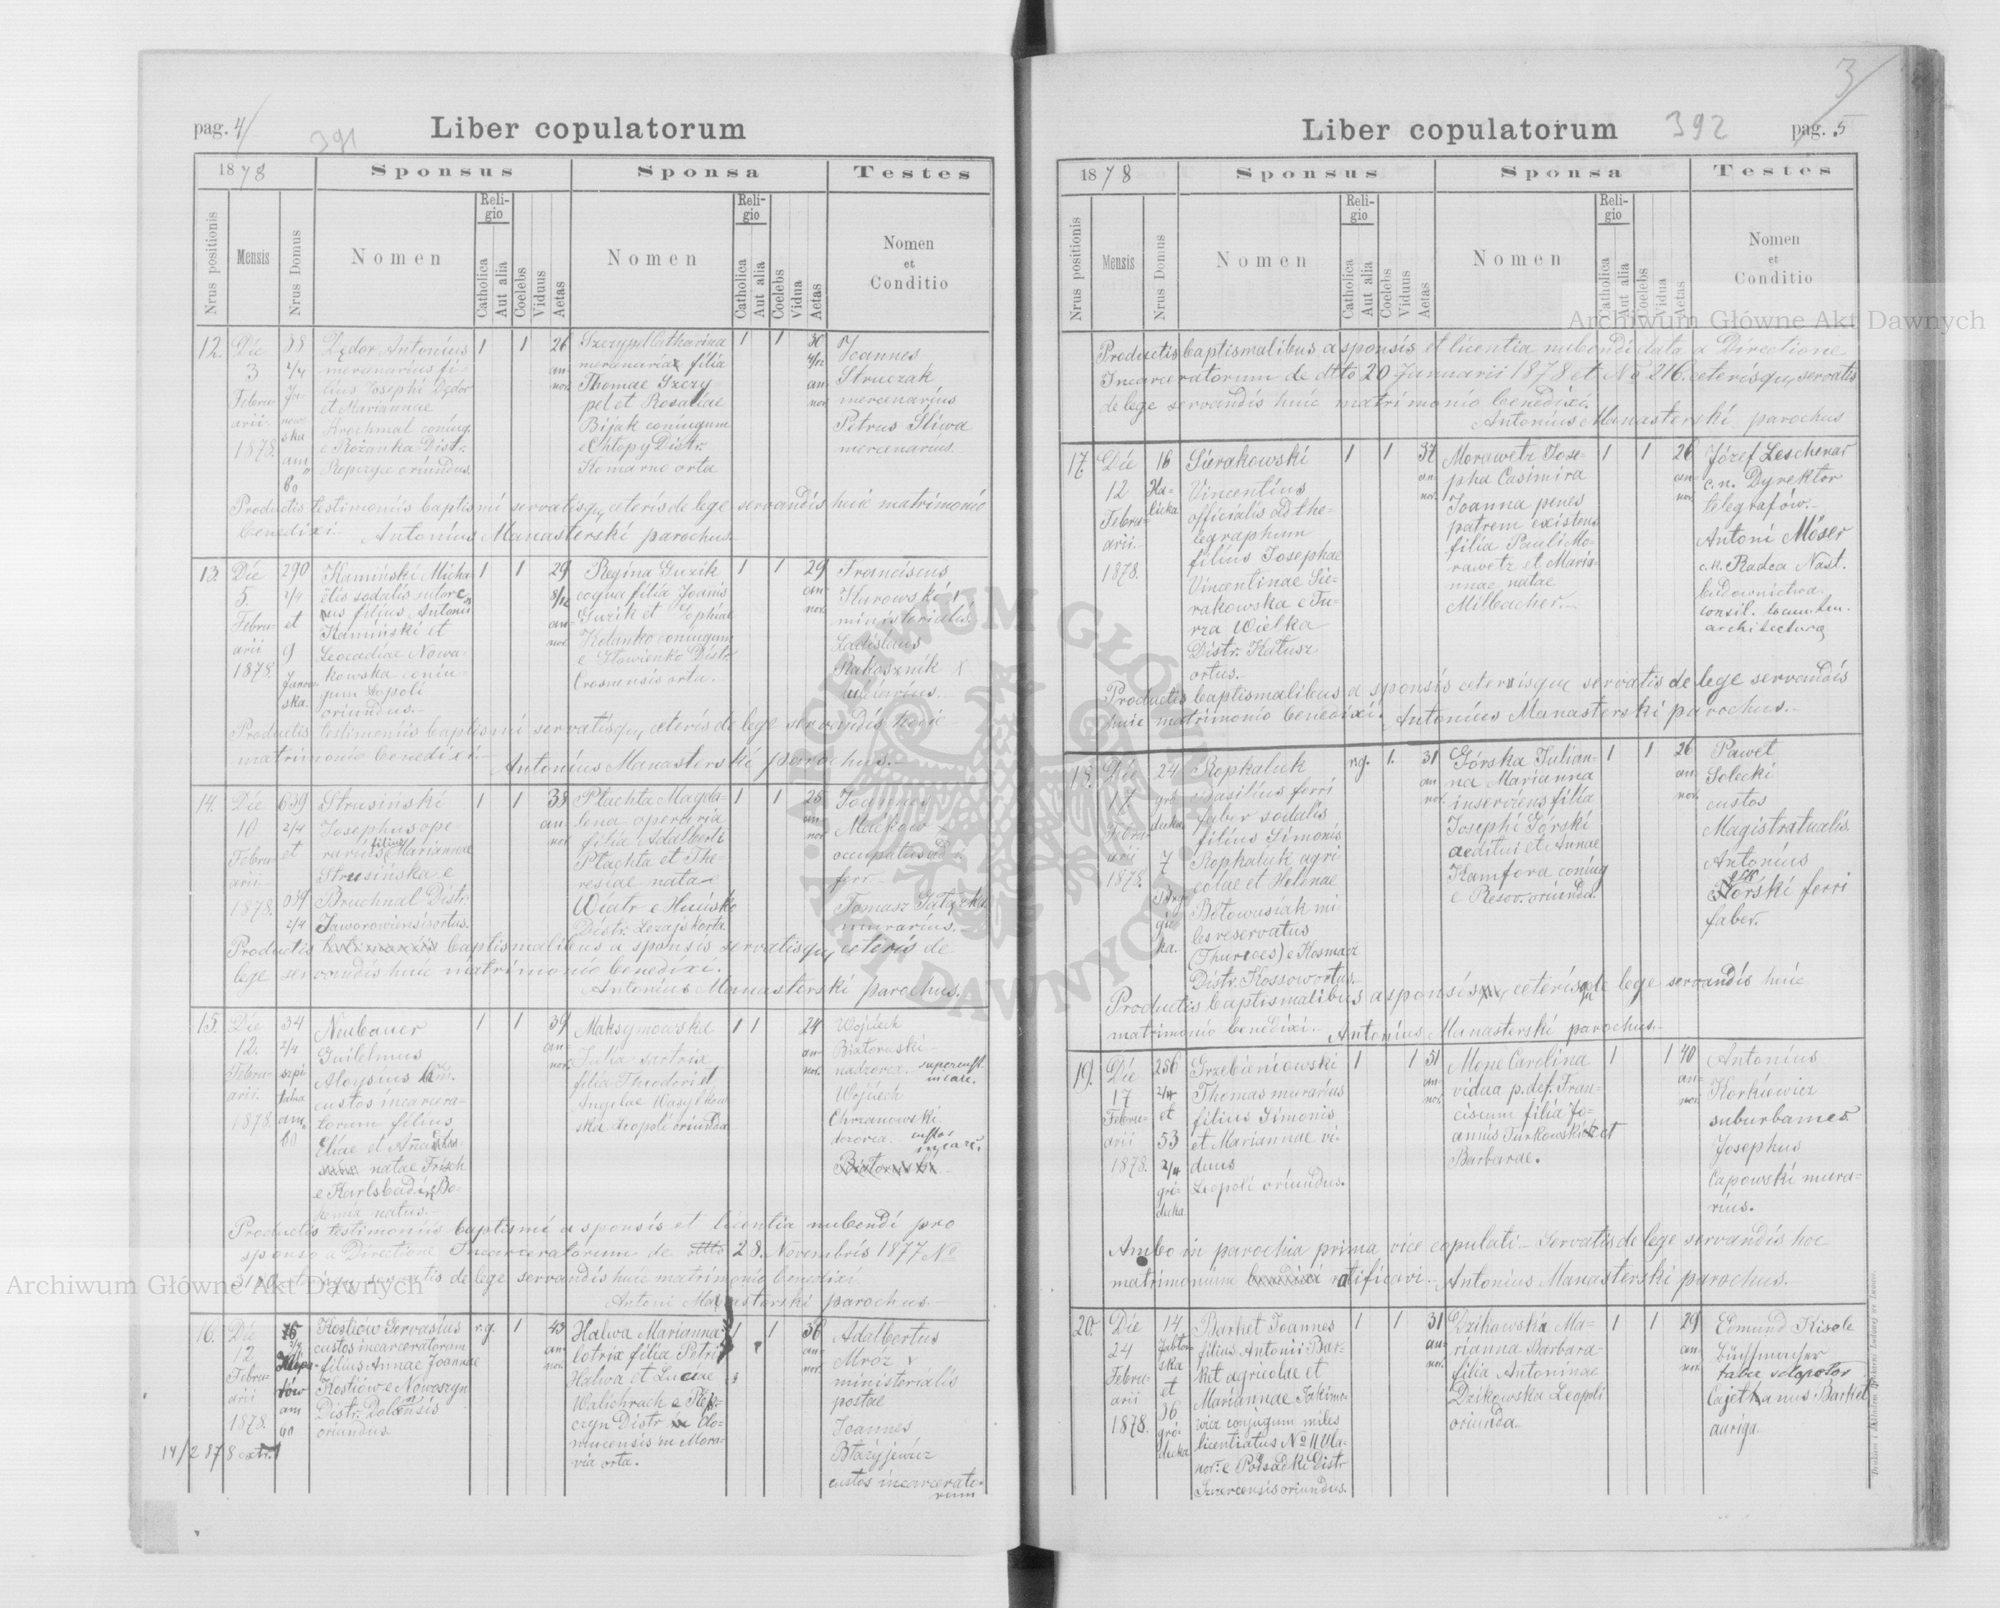 pag. 4
391
Liber copulatorum
1878
Sponsus
Sponsa
Testes
Nrus positionis
Mensis
Nrus Domus
Nomen
Religio
Catholica
Aut alia
Coelebs
Viduus
Aetas
Nomen
Religio
Catholica
Aut alia
Coelebs
Vidua
Aetas
Nomen
et
Conditio
12.
Die
3
Febru-
arii
1878.
88
2/4
Ja-
now-
ska
am
bo
Dędor Antonius
mercenarius fi-
lius Josephi Dędor
et Mariannae
Krochmal coniug.
e Rożanka Distr.
Ropczyce oriundus.
1
1
26
an-
nor.
Szczypel Catharina
mercenaria filia
Thomae Szczy-
pel et Rosaliae
Bijak coniugum
e Chłopy Distr.
Komarno orta
1
1
30
4/12
an
nor.
Joannes
Struczak
mercenarius
Petrus Śliwa
mercenarius.
Productis testimoniis baptismi servatisque ceteris de lege servandis huic matrimonio
benedixi. Antonius Manasterski parochus.
13.
Die
5
Febru-
arii
1878.
290
2/4
et
9
Janow-
ska.
Kamiński Micha-
elis sodalis sutore
us filius Antonii
Kamiński et
Leocadiae Nowa-
kowska coniu-
gum Leopoli
oriundus.-
1
1
29
8/12
an-
nor.
Regina Guzik
coqua filia Joanis
Guzik et Sophiae
Kolanko coniugum
e Głowienko Distr.
Crosnensis orta.
1
1
29
an-
nor.
Franciscus
Kurowski
ministerialis.
Ladislaus
Rakosznik X
Productis testimoniis baptismi servatisque ceteris de lege servandis huic
matrimonio benedixi.-
Antonius Manasterski parochus.-
14.
Die
10
Febru-
arii
1878.
639
2/4
et
639
2/4
Strusiński
Josephus ope-
rarius filius Mariannae
Strusińska e
Bruchnal Distr.
Jaworowiensis ortus.
1
1
38
an-
nor
Płachta Magda-
lena operaria
filia Adalberti
Płachta et The-
resiae natae
Wiatr e Hucisko
Distr. Leżajsk orta.
1
1
28
an-
nor
Joannes
Maćkow
occupatus ad v.
ferr.
Tomasz
murarius.
Productis baptismalibus a sponsis servatisque ceteris de
lege servandis huic matrimonio benedixi.
Antonius Manasterski parochus.
15.
Die
12.
Febru-
arii.
1878
34
2/4
szpi
talna
am-
bo
Neubauer
Guilelmus
Aloysius
custos incarcera-
torum filius
Eliae et
natae Frisch
e Karlsbad Bo-
hemia natus.-
1
1
39
an-
nor.
Maksymowska
Julia sartrix
filia Theodori et
Angelae Wasylkow
ska Leopoli oriunda
1
1
24
an-
nor.
Wojciech
Białoruski
nadzorca.
Wojciech
Chrzanowski
dozorca. custos
incarc.
Productis testimoniis baptismi a sponsis et licentia nubendi pro
sponso a Directione Incarceratorum de dtto 28. Novembris 1877 No
servatis de lege servandis huic matrimonio benedixi
Antoni Manasterski parochus.-
16.
Die
12
Febru-
arii
1878.
am
bo
Kostiów Gervasius
custos incarceratorum
filius Annae Joannae
Kostiów e Nowoszyn
Distr. Dolinensis
oriundus.
r.g.
1
43
an-
nor.
Halwa Marianna
lotrix filia Petri
Halwa et Luciae
Walichrach e
Distr
mucensis in Mora-
via orta.
1
1
36
an-
nor.
Adalbertus
Mróz
ministerialis
postae
Joannes
Błażyjewicz
custos incarcerato-
rum
14/2 878 extr.
3
392
Liber copulatorum
pag. 5
1878
Sponsus
Sponsa
Testes
Nrus positionis
Mensis
Nrus Domus
Nomen
Religio
Catholica
Aut alia
Coelebs
Viduus
Aetas
Nomen
Religio
Catholica
Aut alia
Coelebs
Vidua
Aetas
Nomen
et
Conditio
Productis baptismalibus a sponsis et licentia nubendi data a Directione
Incarceratorum de dtto 20 Januarii 1878 et No 216. ceterisque servatis
de lege servandis huic matrimonio benedixi.
Antonius Manasterski parochus
17.
Die
12
Febru-
arii.
1878.
16
Ha-
licka.
Sierakowski
Vincentius
officialis ad the-
legraphum
filius Josephae
Vincentinae Sie-
rakowska e Tu-
rza Wielka
Distr. Kałusz
ortus.
1
1
37
an-
nor.
Morawetz Jose-
pha Casimira
Joanna penes
patrem existens
filia Pauli Mo-
rawetz et Marian-
nae natae
Milbacher.-
1
1
26
an-
nor.
Józef Leschenar
c.n. Dyrektor
telegrafów.-
Antoni Möser
c.k. Radca Nast.
budownictwa.
consil. locumten.
architecturae
Productis baptismalibus a sponsis ceterisque servatis de lege servandis
huic matrimonio benedixi. Antonius Manasterski parochus.-
18.
Die
17
Febru-
arii
1878.
24
gró-
decka.
7
ka.
Ropkaluk
Basilius ferri
faber sodalis
filius Simonis
Ropkaluk agri
colae et Helenae
mi-
les reservatus
e Kosmacz
Distr. Kossow ortus.
r.g.
1.
31
an-
nor.
Górska Julian-
na Marianna
inserviens filia
Josephi Górski
aeditui et Annae
Kamfora coniug
e Resov. oriunda.
1
1
26
an-
nor.
Paweł
Solecki
custos
Magistratualis.
Antonius
Górski ferri
faber.
Productis baptismalibus a sponsis ceterisque de lege servandis huic
matrimonio benedixi.- Antonius Manasterski parochus.-
19.
Die
17
Febru-
arii
1878.
256
2/4
et
53
2/4
gró-
decka
Grzebieniowski
Thomas murarius
filius Simonis
et Mariannae vi-
duus
Leopoli oriundus.
1
1
51
an-
nor.
Mone Carolina
vidua p. def. Fran-
ciscum filia Jo-
annis Turkowski et
Barbarae.
1
1
40
an-
nor.
Antonius
Korkiewicz
suburbanus
Josephus
Capowski mura-
rius.
Ambo in parochia prima vice copulati - Servatis de lege servandis hoc
matrimonium ratificavi.- Antonius Manasterski parochus.
20.
Die
24
Febru-
arii
1878.
14
Jabłon-
ska
et
36
gró-
decka
Barket Joannes
filius Antonii Bar-
ket agricolae et
Mariannae Jakimo-
wicz coniugum miles
licentiatus No 11 Ula-
nor. e Posadki Distr
oriundus.
1
1
31
an-
nor.
Dzikowska Ma-
rianna Barbara
filia Antoninae
Dzikowska Leopoli
oriunda.
1
1
29
an-
nor.
Edmund Kisele
Büchsmacher
faber sclopetor
Cajethanus Barket
auriga.
Archiwum Główne Akt Dawnych
Archiwum Główne Akt Dawnych
ARCHIWUM GŁÓWNE AKT DAWNYCH